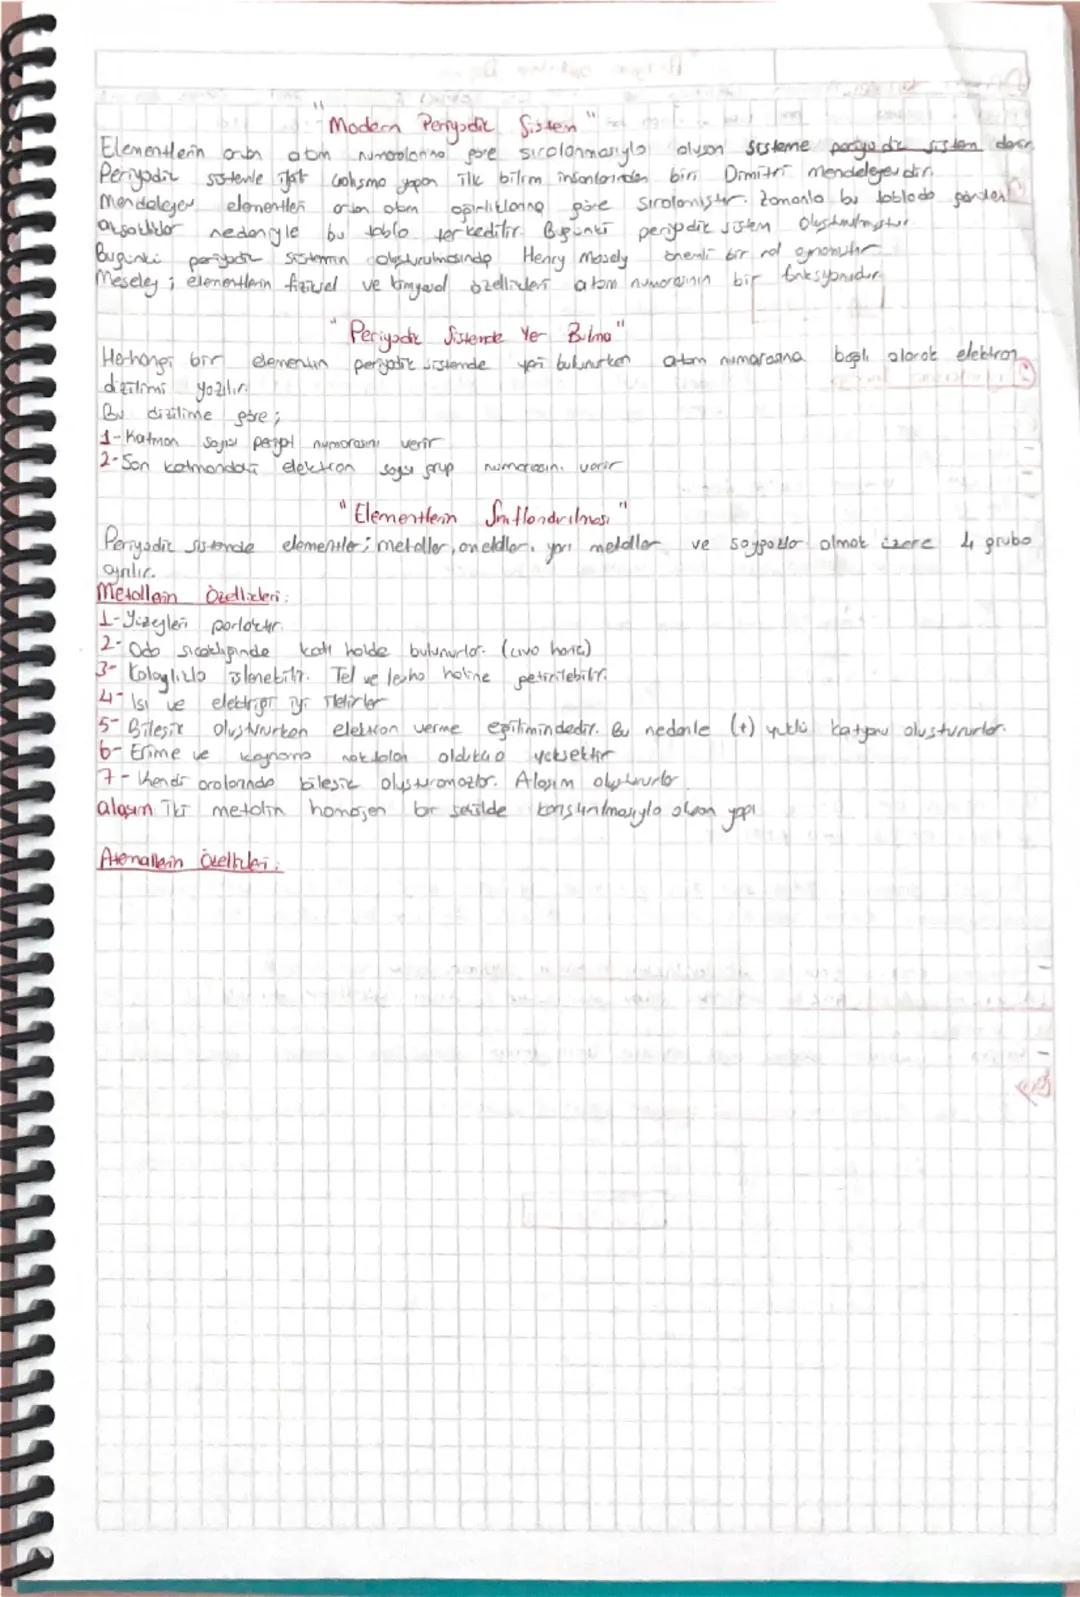 "Modern Periyodik Sistem"
Elementlerin artan atom numaralarına göre sıralanmasıyla oluşan sisteme periyodik sistem denir.
Periyodik sistemle ilgili çalışma yapan ilk bilim insanlarından biri Dimitri mendeleyevdir.
Mendeleyev elementleri artan atom ağırlıklarına göre sıralamıştır. Zamanla bu tabloda görülen
aksaklıklar nedeniyle bu tablo terkedilir. Bugünkü periyodik sistem oluşturulmuştur.
Bugünkü periyodik sistemin oluşturulmasında Henry Mosely önemli bir rol oynamıştır
Meseley; elementlerin fiziksel ve kimyasal özellikleri atom numarasının bir fonksiyonudur
"Periyodik Sistemde Yer Bulma"
Herhangi bir elementin periyodik sistemde yeri bulunurken atom numarasına bağlı olarak elektron
dizilimi yazılır.
Bu dizilime göre;
1-Katman sayısı periyot numarasını verir
2-Son katmandaki elektron sayısı grup numarasını verir
"Elementlerin Sınıflandırılması"
Periyodik sistemde elementler; metaller, ametaller, yarı metaller ve soygazlar olmak üzere 4 gruba
ayrılır.
Metallerin Özellikleri:
1-Yüzeyleri parlaktır.
2-Oda sıcaklığında katı halde bulunurlar. (cıva hariç)
3- Kolaylıkla işlenebilir. Tel ve levha haline getirilebilir.
4- Isı ve elektriği iyi iletirler
5- Bileşik oluştururken elektron verme eğilimindedir. Bu nedenle (+) yüklü katyonu oluştururlar.
6- Erime ve kaynama noktaları oldukça yüksektir
7- Kendi aralarında bileşik oluşturamazlar. Alaşım oluştururlar
alaşım iki metalin homojen bir şekilde karıştırılmasıyla oluşan yapı
Ametallerin Özellikleri: